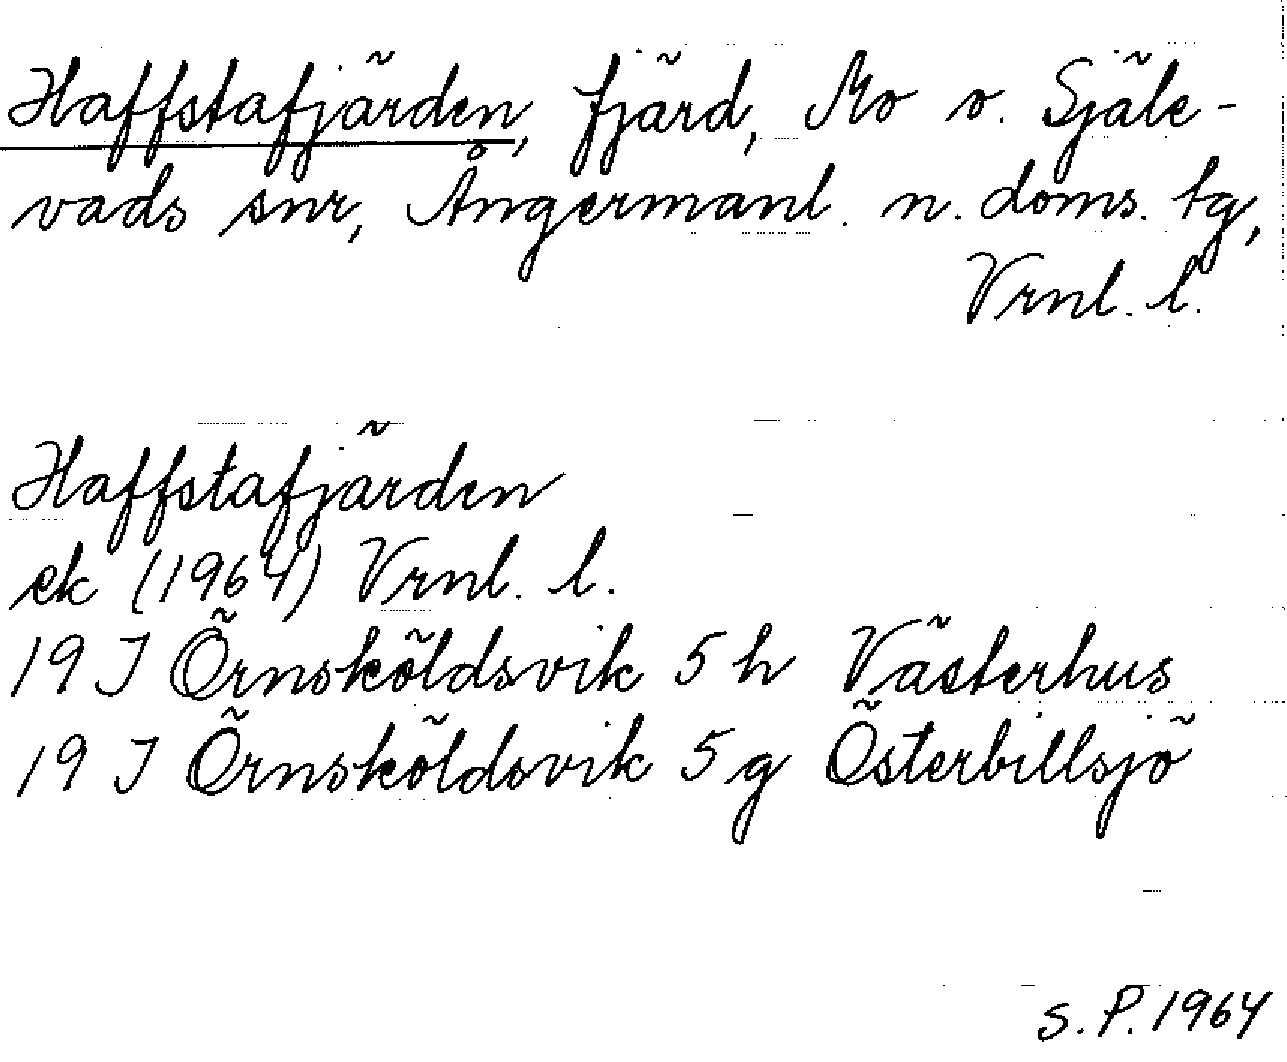 Haffstafjärden, fjärd, Mo o. Själe-
vads snr, Ångermanl. n. doms. tg,
Vrnl. l.
Haffstafjärden
ek (1964) Vrnl. l.
19 J Örnsköldsvik 5 h Västerhus
19 J Örnsköldsvik 5 g Österbillsjö
S. P. 1964